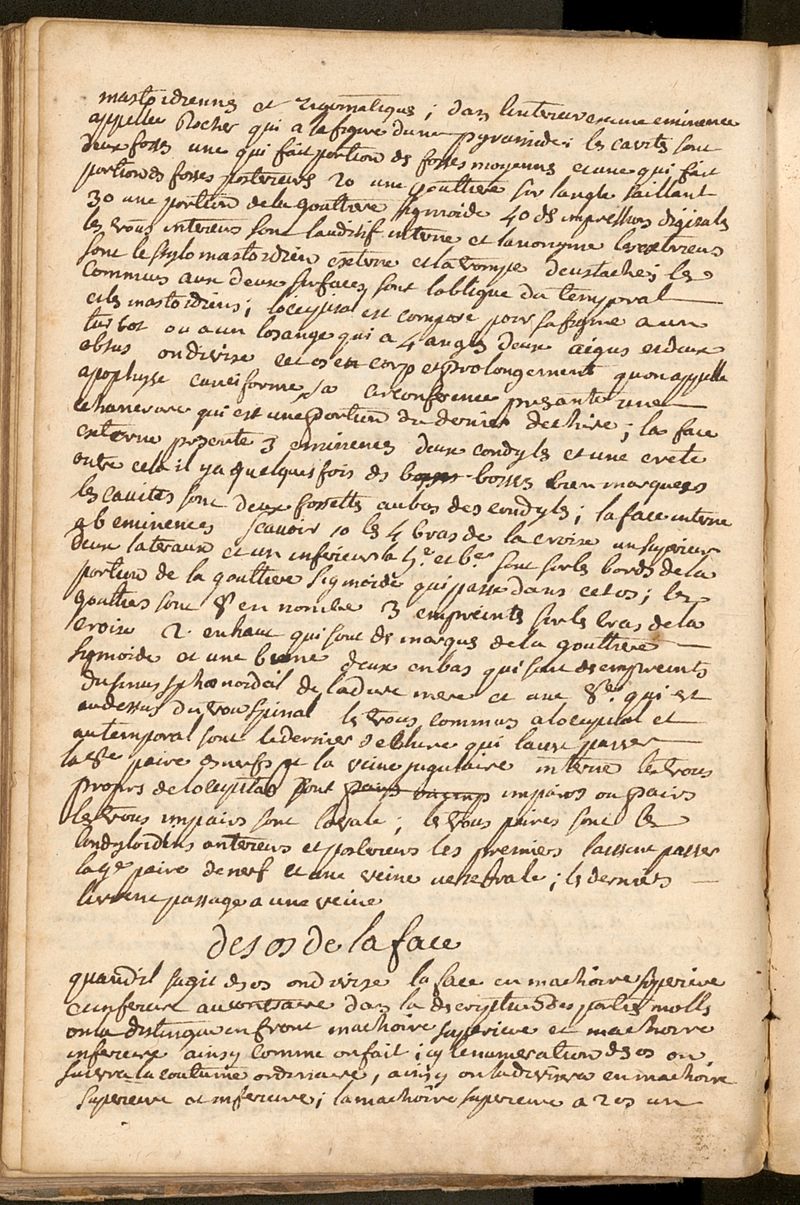 mastoidiennes et zigomatiques ; dans linterieur est une eminence
appellee Rocher qui a la figure dune pyramide ; les cavités sont
deux fosses une qui fait portion des fosses moyennes et une qui fait
portion des fosses posterieures 2o une gouttiere sur langle saillant
3o une portion de la gouttiere sigmoide 4o des impressions digitales
les trous interieurs sont lauditif interne et lanonyme les exterieurs
sont le stylo mastoidien externe et la trompe deustache ; les
communs aux deux surfaces sont lablique du temporal
et les mastoidiens ; loccipital est composé pour sa figure a un
turbot ou a un losange qui a 4 angles deux aigus et deux
obtus on divise cet os en corp et prolongement quon appelle
apophyse cuneiforme sa circonference presante une
echancrure qui est une portion du dernier dechiré ; la face
externe presente 3 eminences deux condyles et une crete
outre cela il ya quelques fois des bosses bien marquees
les cavites sont deux fossettes au bas des condyles ; la face interne
a 6 eminences scavoir 1o les 4 bras de la croix un superieur
deux lateraux et un inferieur la 5e. et 6e. sont sur les bords de la
portion de la gouttiere sigmoide qui passe dans cet os ; les
gouttieres sont 8 en nombre 3 empreintes sur les bras de la
croix 2. en haut qui sont des marques de la gouttiere
sigmoide et une deux en bas qui sont des empreints
du sinus sphœnoideil de la dure mere et une 8e. qui est
audessus du trou spinal les trous communs a loccipital et
au temporal sont le dernier dechiré qui laisse passer
la 8e paire de nerfs et la veine jugulaire interne les trous
propres de loccipital sont impairs ou pairs
les trous impairs sont lovale ; les trous paires sont les
condyloidiens anterieurs et posterieurs les premiers laissent passer
la 9e paire de nerf et une veine vertebrale ; les derniers
livrent passage a une veine
des os de la face
quand il sagit des os on divise la face en machoire superieure
et inferieure au contraire dans la description des parties molles
on la distingue en front machoire superieure et machoire
inferieure ainsy comme on fait icy lenumeration des os on
suivra la coutume ordinaire, ainsy on la divisera en machoire
superieure et inferieure ; la machoire superieure a 2 os un